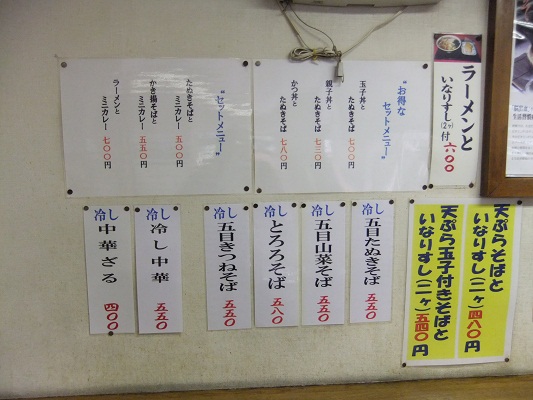 ラーメンと
いなりすし(2ヶ)付
六〇〇
"お得な
セットメニュー"
玉子丼と
たぬきそば 六〇〇円
親子丼と
たぬきそば 七三〇円
かつ丼と
たぬきそば 七八〇円
"セットメニュー"
たぬきそばと
ミニカレー 五〇〇円
かき揚そばと
ミニカレー 五五〇円
ラーメンと
ミニカレー 七〇〇円
天ぷらそばと
いなりすし(二ヶ)四八〇円
天ぷら玉子付きそばと
いなりすし(二ヶ)五四〇円
冷し
五目たぬきそば
五五〇
冷し
五目山菜そば
五五〇
冷し
とろろそば
五八〇
冷し
五目きつねそば
五五〇
冷し
冷し中華
五五〇
冷し
中華ざる
四〇〇